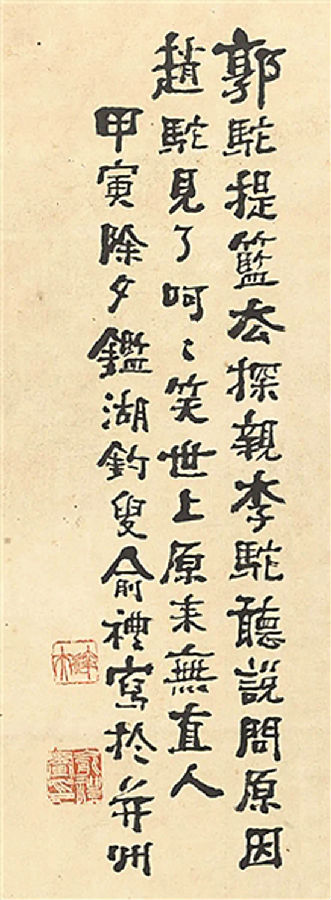 郭駝提籃厺探親李駝聽説問原因
趙駝見了呵〻笑世上原来無直人
甲寅除夕鑑湖釣叟俞禮寫於并州